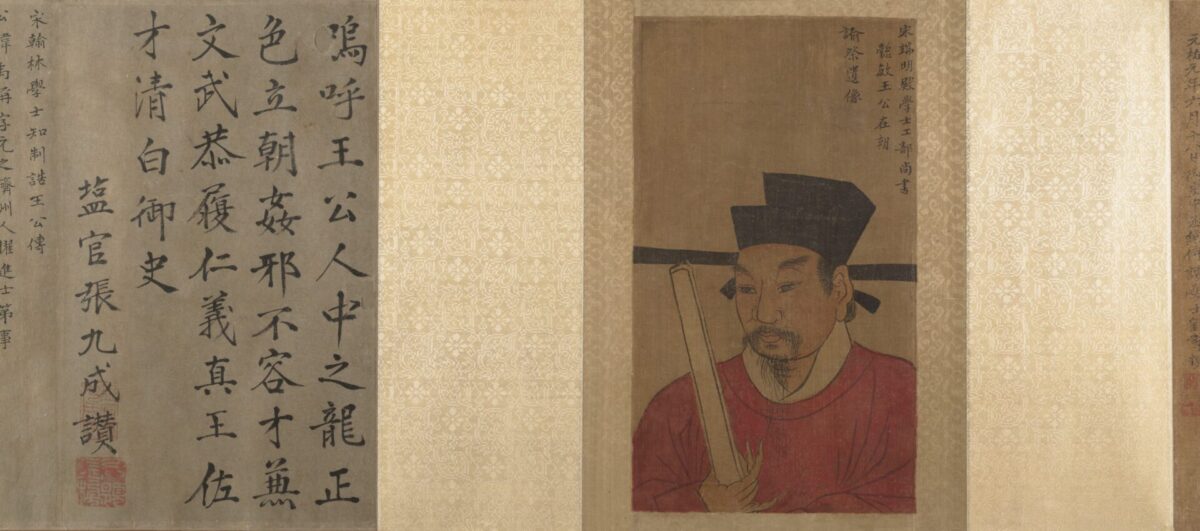 元祐元年九月
宋端明殿學士工部尚書
懿敏王公在朝
諭祭遺像
嗚呼王公人中之龍正
色立朝姦邪不容才兼
文武恭履仁義真王佐
才清白御史
塩官張九成讚
宋翰林學士知制誥王公傳
公諱禹偁字元之濟州人擢進士第事